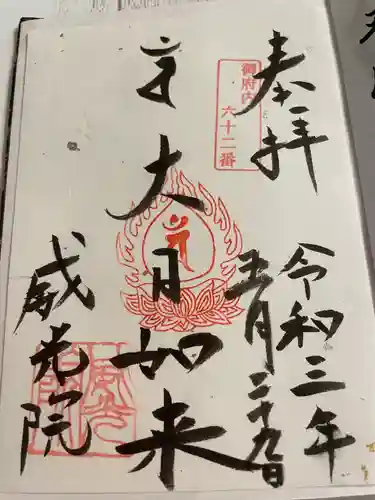 奉拝
御府内
六十二番
令和三年
五月二十九日
大日如来
威光院